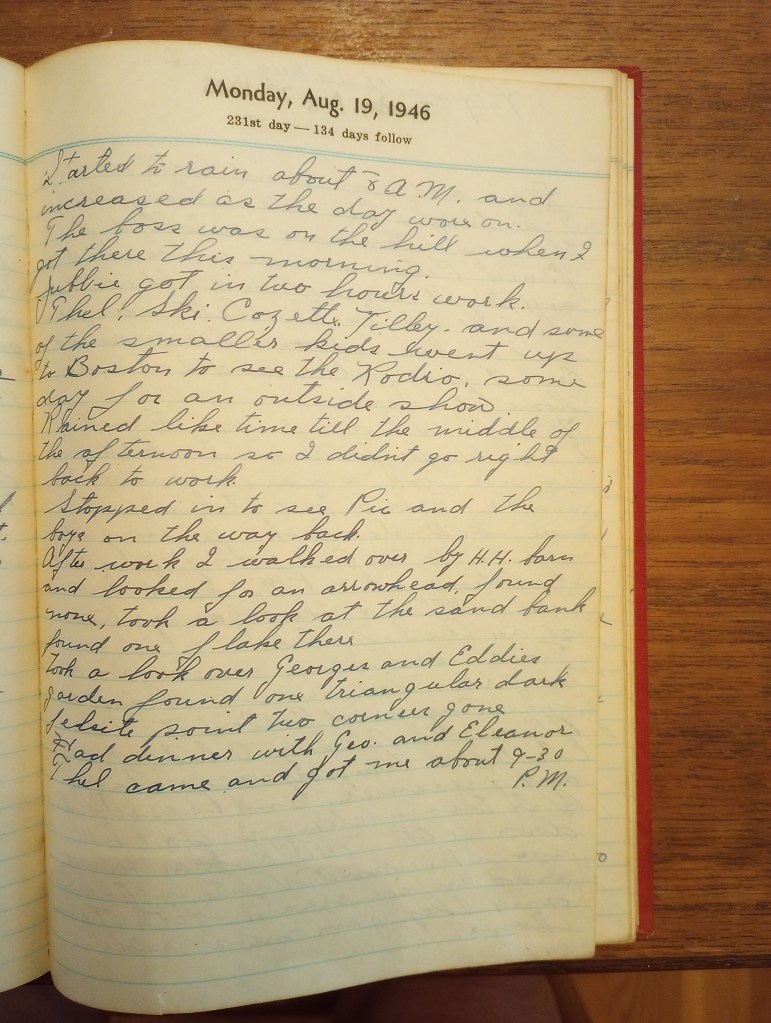 Monday, Aug. 19, 1946
231st day — 134 days follow
Started to rain about 8 A.M. and
increased as the day wore on.
The boss was on the hill when I
got there this morning.
Jubbie got in two hours work.
Thel. Ski. Cozette. Tilley. and some
of the smaller kids went up
to Boston to see the Rodio, some
day for an outside show.
Rained like time till the middle of
the afternoon so I didnt go right
back to work.
Stopped in to see Pic and the
boys on the way back.
After work I walked over by H.H. barn
and looked for an arrowhead, found
none, took a look at the sand bank
found one flake there
took a look over Georges and Eddies
garden found one triangular dark
felsite point two corners gone
Had dinner with Geo. and Eleanor
Thel came and got me about 9-30
P.M.